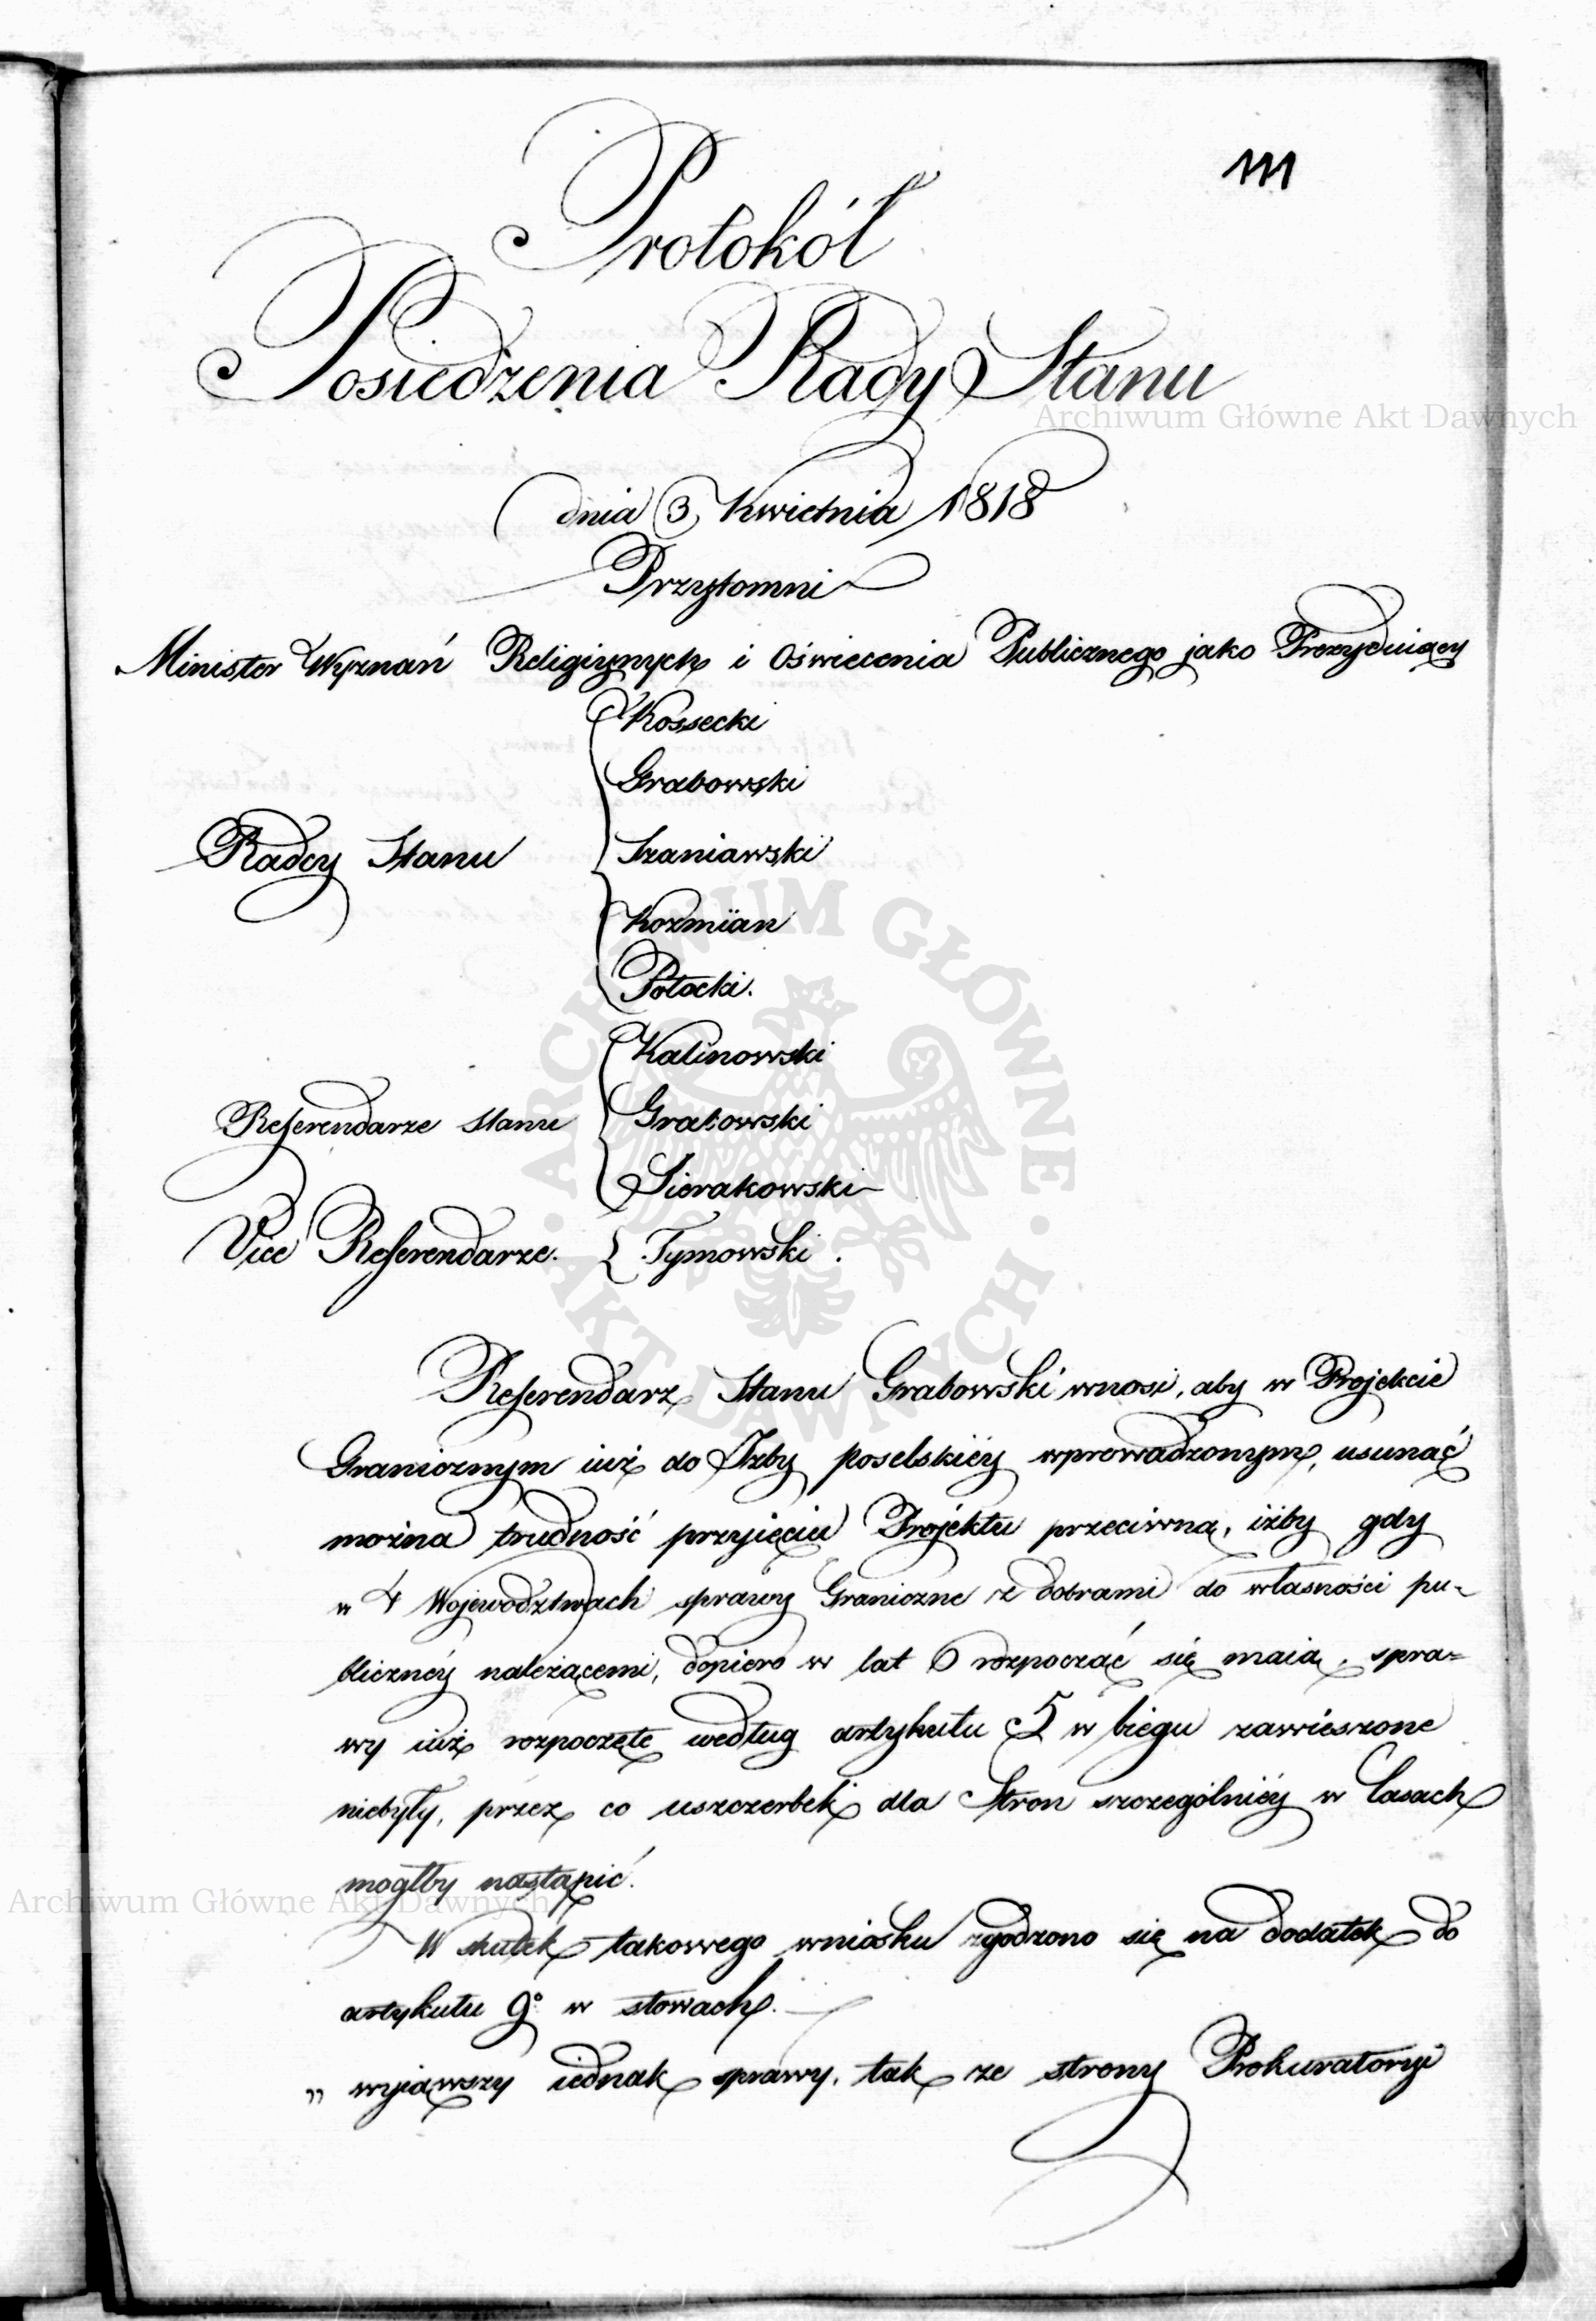 111
Protokół
Posiedzenia Rady Stanu
Archiwum Główne Akt Dawnych
dnia 3 Kwietnia 1818
Przytomni
Minister Wyznań Religiynych i Oświecenia Publicznego jako Prezyduiący
Kossecki
Grabowski
Radcy Stanu
Szaniawski
Kozmian
Potocki.
Kalinowski
Referendarze Stanu
Grabowski
Sierakowski
Vice Referendarze.
Tymowski.
ARCHIWUM GŁÓWNE · AKT DAWNYCH ·
Referendarz Stanu Grabowski wnosi, aby w Projekcie
Granicznym iuż do Izby poselskiéy wprowadzonym, usunąć
można trudność przyięciu Projektu przeciwną, iżby gdy
w 4 Województwach sprawy Graniczne z dobrami do własności pu-
blicznéy należącemi, dopiero w lat 6 rozpocząć się maią, spra=
wy iuż rozpoczęte według artykułu 5 w biegu zawieszone
niebyły, przez co uszczerbek dla Stron szczególniéy w Lasach
mógłby nastąpić.
Archiwum Główne Akt Dawnych
W skutek takowego wniosku zgodzono się na dodatek do
artykułu 9° w słowach.
„ wyiąwszy iednak sprawy, tak ze strony Prokuratoryi